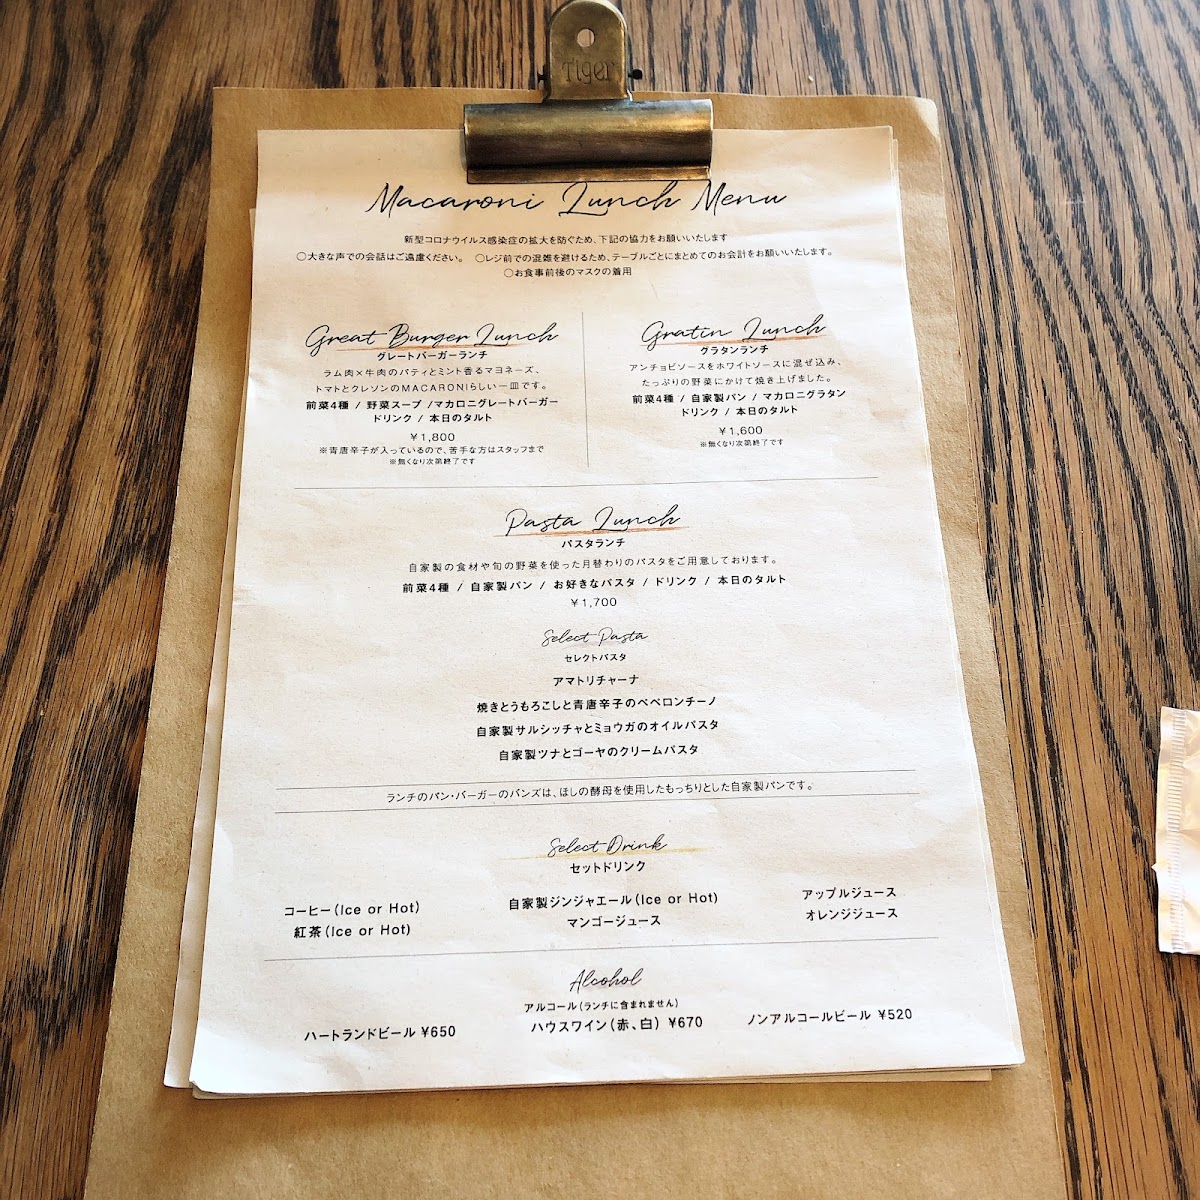 Tiger
Macaroni Lunch Menu
新型コロナウイルス感染症の拡大を防ぐため、下記の協力をお願いいたします
〇大きな声での会話はご遠慮ください。 〇レジ前での混雑を避けるため、テーブルごとにまとめてのお会計をお願いいたします。
〇お食事前後のマスクの着用
Great Burger Lunch
グレートバーガーランチ
ラム肉×牛肉のパティとミント香るマヨネーズ、
トマトとクレソンのMACARONIらしい一皿です。
前菜4種 / 野菜スープ /マカロニグレートバーガー
ドリンク / 本日のタルト
¥1,800
※青唐辛子が入っているので、苦手な方はスタッフまで
※無くなり次第終了です
Gratin Lunch
グラタンランチ
アンチョビソースをホワイトソースに混ぜ込み、
たっぷりの野菜にかけて焼き上げました。
前菜4種 / 自家製パン / マカロニグラタン
ドリンク / 本日のタルト
¥1,600
※無くなり次第終了です
Pasta Lunch
パスタランチ
自家製の食材や旬の野菜を使った月替わりのパスタをご用意しております。
前菜4種 / 自家製パン / お好きなパスタ / ドリンク / 本日のタルト
¥1,700
Select Pasta
セレクトパスタ
アマトリチャーナ
焼きとうもろこしと青唐辛子のペペロンチーノ
自家製サルシッチャとミョウガのオイルパスタ
自家製ツナとゴーヤのクリームパスタ
ランチのパン・バーガーのバンズは、ほしの酵母を使用したもっちりとした自家製パンです。
Select Drink
セットドリンク
コーヒー(Ice or Hot)
紅茶(Ice or Hot)
自家製ジンジャエール(Ice or Hot)
マンゴージュース
アップルジュース
オレンジジュース
Alcohol
アルコール(ランチに含まれません)
ハートランドビール ¥650
ハウスワイン(赤、白) ¥670
ノンアルコールビール ¥520